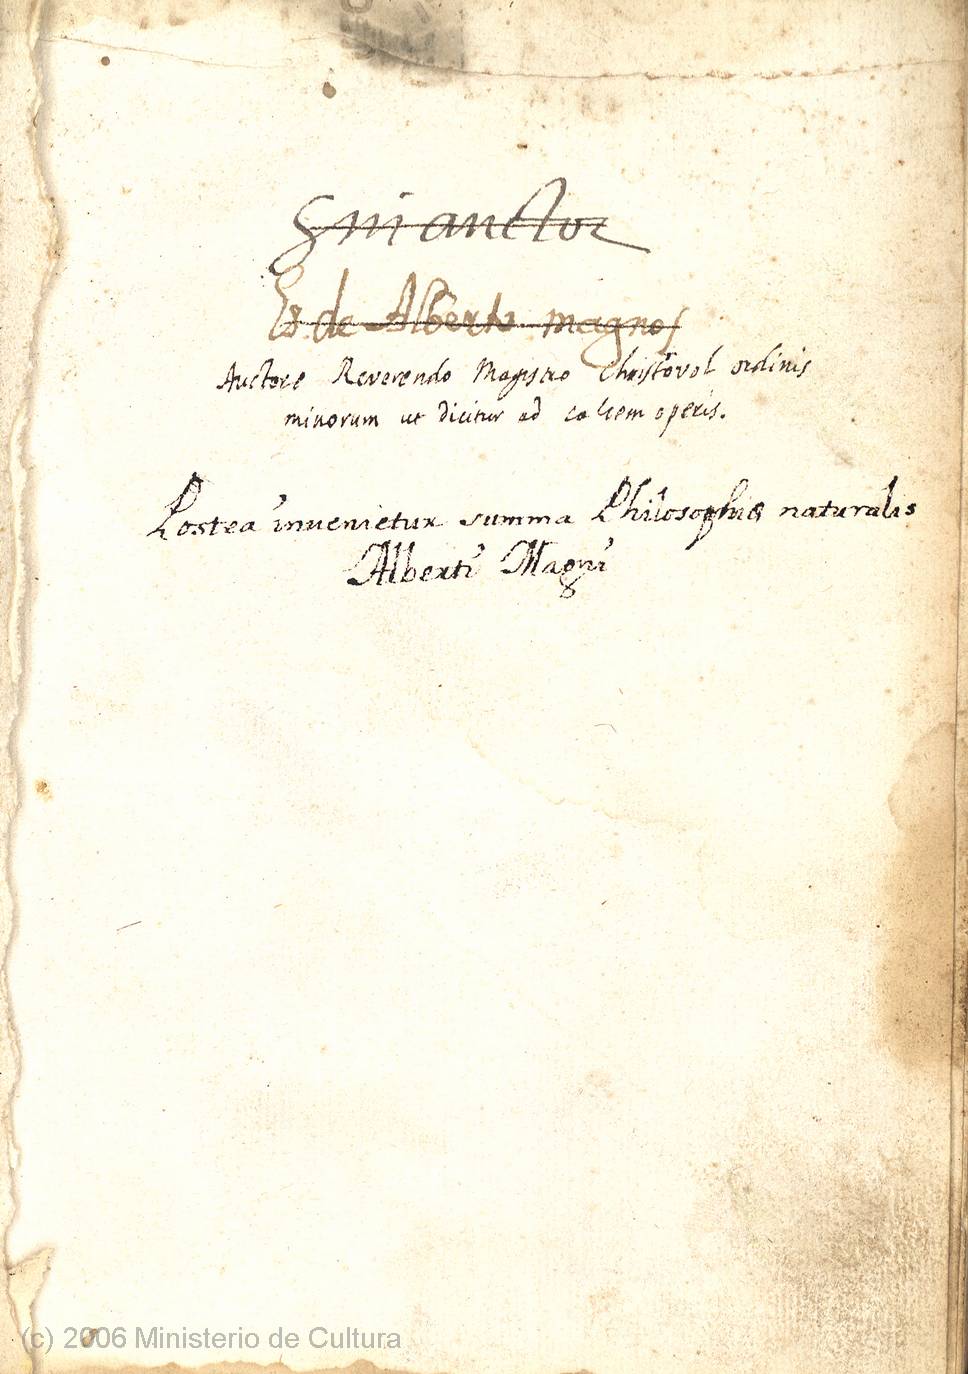 Sin auctor
Es de Alberto magno
Auctore Reverendo Magistro Christovol ordinis
minorum ut dicitur ad calcem operis.
Postea invenietur summa Philosophiæ naturalis
Alberti Magni
(c) 2006 Ministerio de Cultura